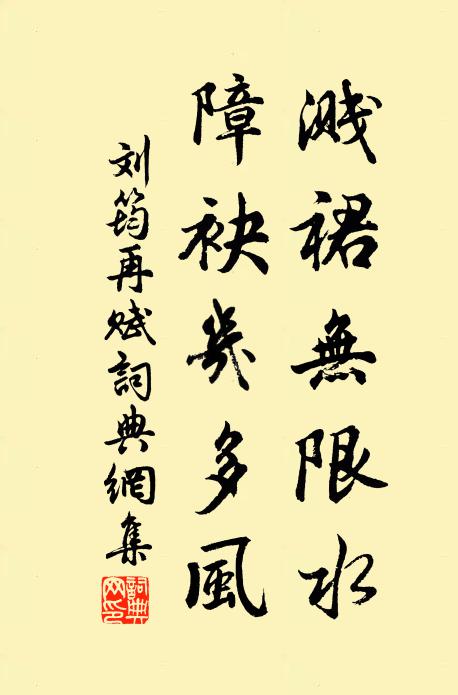 溅裙無限水
障袂幾多風
刘筠再赋詞典網集
詞典網印